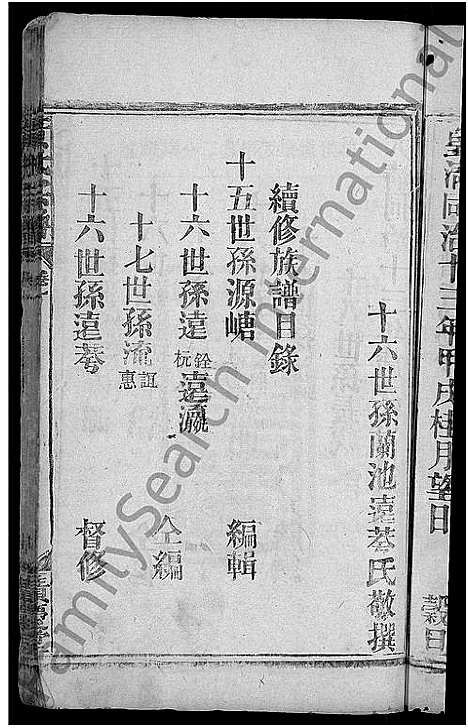 皇清同治十三年甲戌桂月望日 穀旦
十六世孫蘭池遠棻氏敬撰
續修族譜目錄
十五世孫源嵣 編輯
十六世孫遠銓杬遠瀛 仝編
十七世孫流誼惠
十六世孫遠棻 督修
amitySearch International